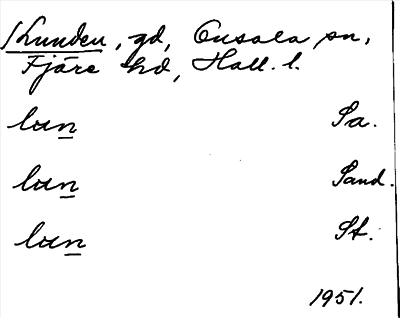 /Lunden, gd, Onsala sn,
Fjäre hd, Hall. l.
lun Sa.
lun Sand.
lun St.
1951.